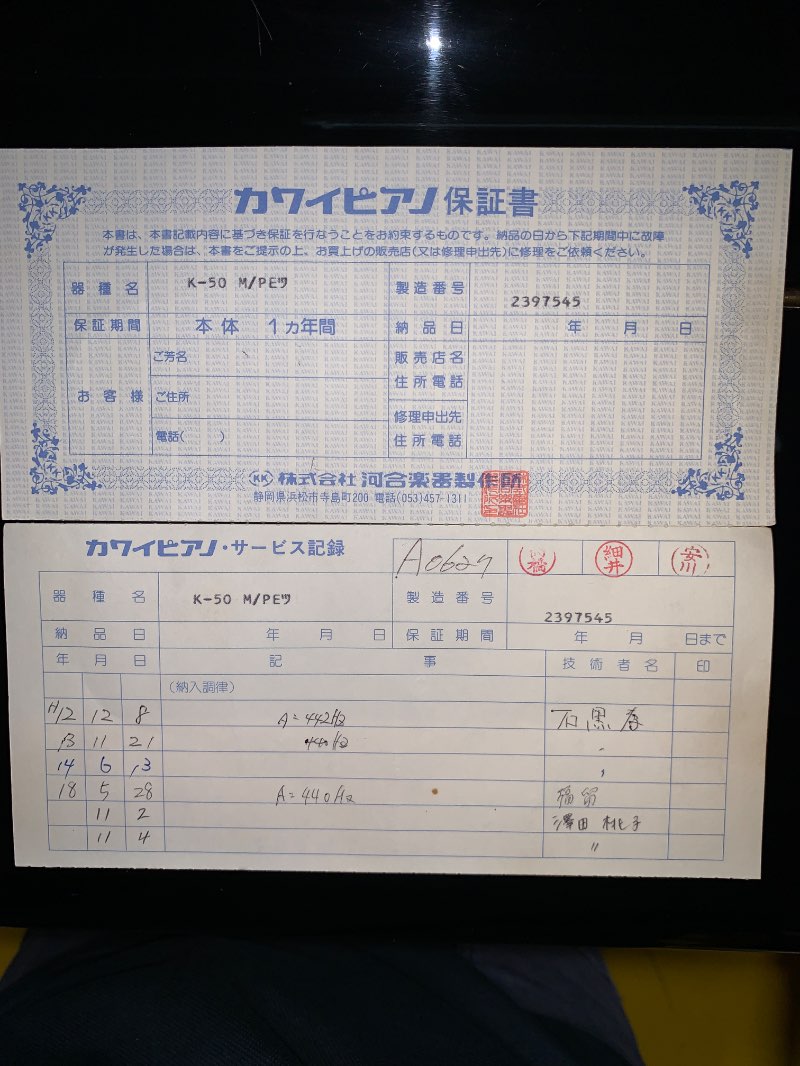 カワイピアノ 保証書
本書は、本書記載内容に基づき保証を行なうことをお約束するものです。納品の日から下記期間中に故障
が発生した場合は、本書をご提示の上、お買上げの販売店(又は修理申出先)に修理をご依頼ください。
器種名 K-50 M/PEツ 製造番号 2397545
保証期間 本体 1ヵ年間 納品日 年 月 日
お客様 ご芳名 販売店名
住所電話
ご住所
修理申出先
電話( ) 住所電話
KK 株式会社 河合楽器製作所
静岡県浜松市寺島町200 電話(053)457-1311
カワイピアノ・サービス記録 A0627 細井 安川
器種名 K-50 M/PEツ 製造番号 2397545
納品日 年 月 日 保証期間 年 月 日まで
年 月 日 記事 技術者名 印
(納入調律)
H12 12 8 A=442Hz 石黒
13 11 21 440Hz
14 6 13
18 5 28 A=440Hz
11 2 澤田 桃子
11 4 〃